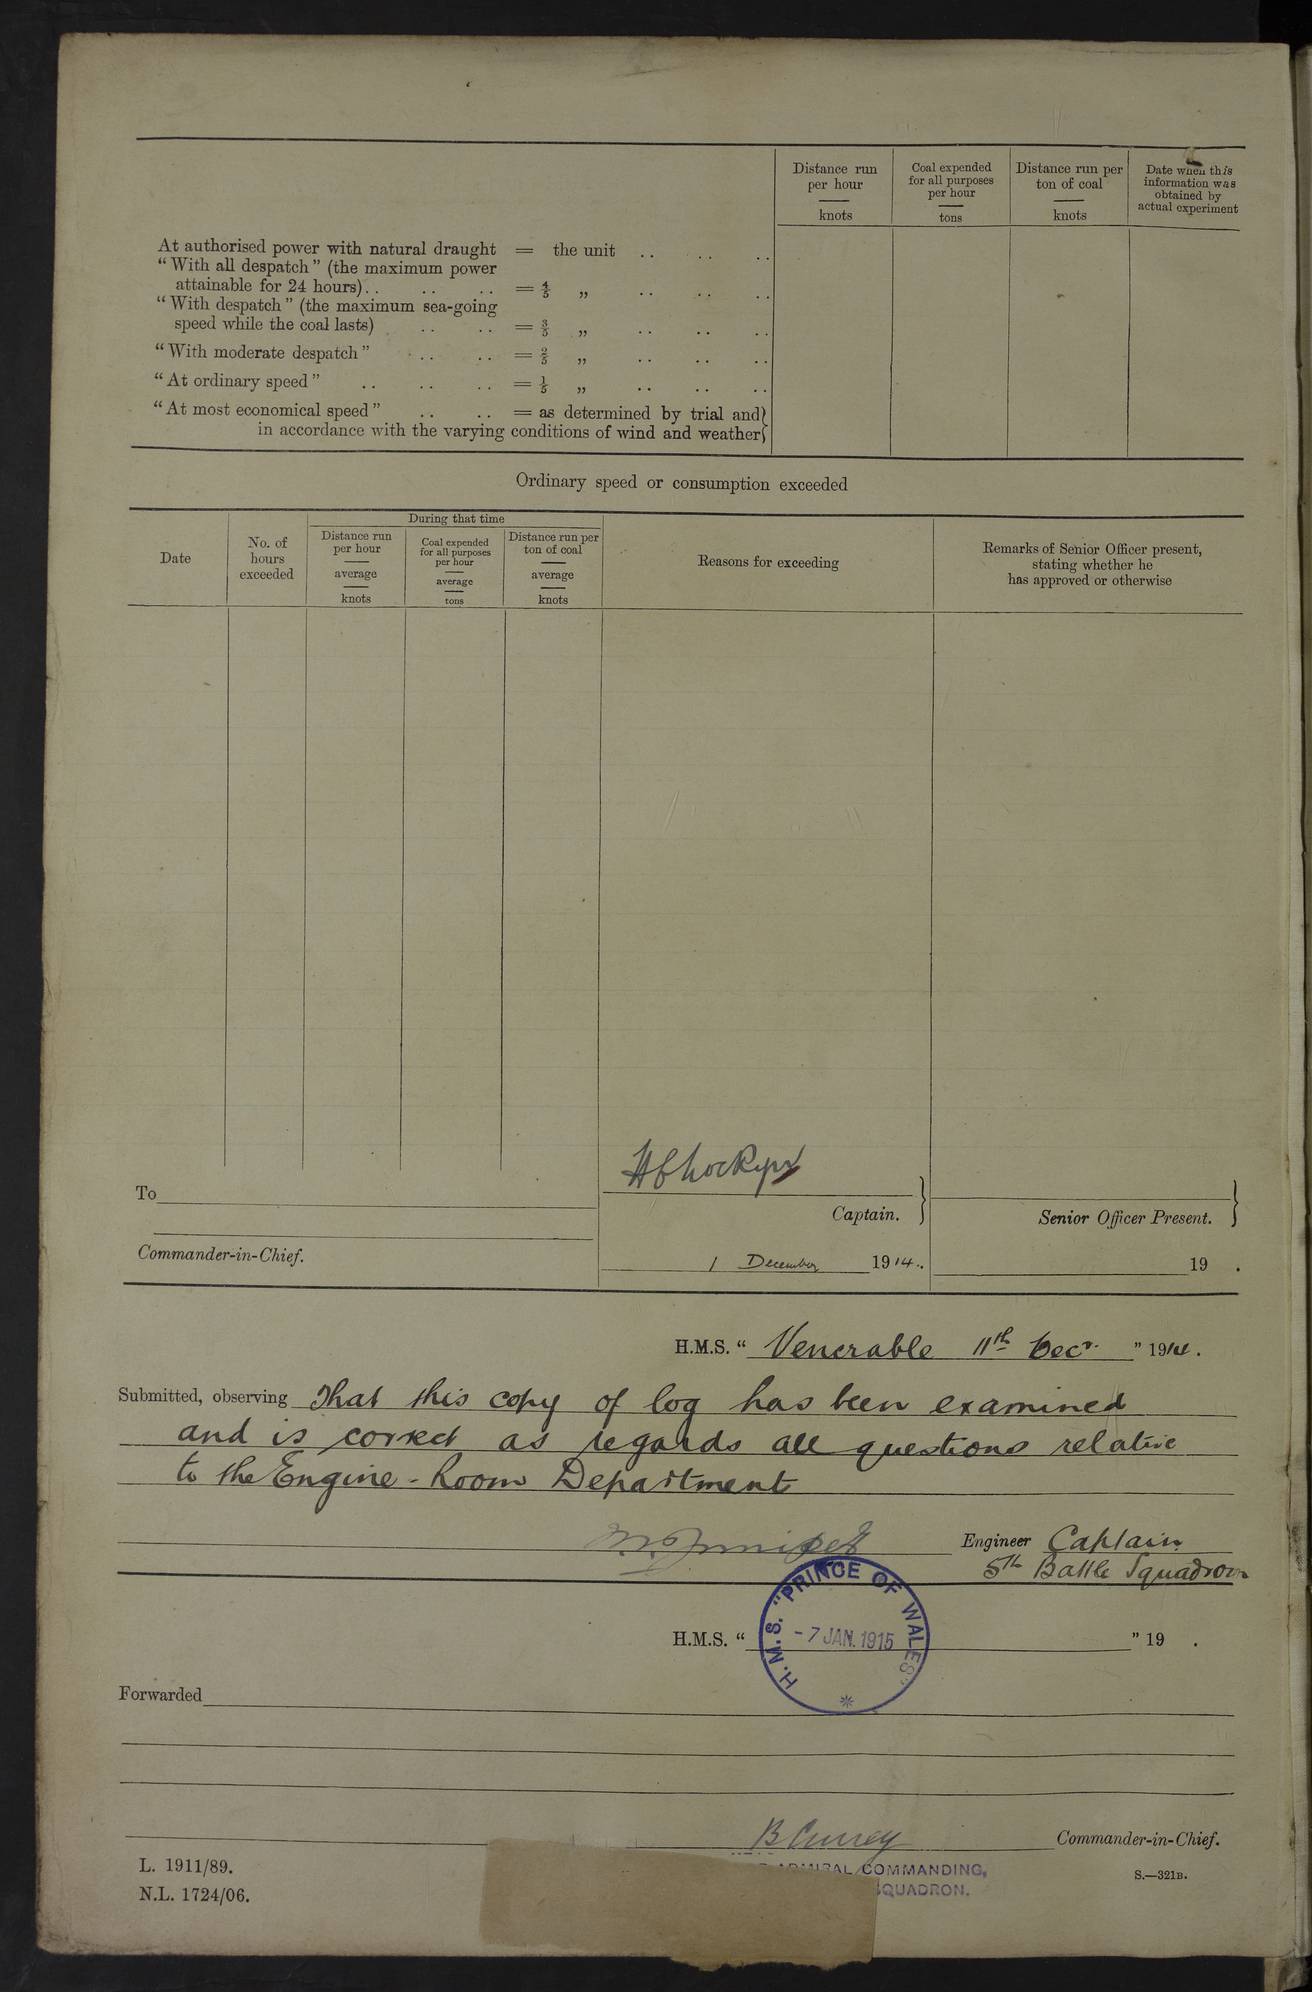 Distance run
per hour
knots
Coal expended
for all purposes
per hour
tons
Distance run per
ton of coal
knots
Date when this
information was
obtained by
actual experiment
At authorised power with natural draught = the unit .. .. ..
“With all despatch” (the maximum power
attainable for 24 hours).. .. .. = 4/5 „ .. .. ..
“With despatch” (the maximum sea-going
speed while the coal lasts) .. .. = 3/5 „ .. .. ..
“With moderate despatch” .. .. = 2/5 „ .. .. ..
“At ordinary speed” .. .. .. = 1/5 „ .. .. ..
“At most economical speed” .. .. = as determined by trial and}
in accordance with the varying conditions of wind and weather}
Ordinary speed or consumption exceeded
Date
No. of
hours
exceeded
During that time
Distance run
per hour
average
knots
Coal expended
for all purposes
per hour
average
tons
Distance run per
ton of coal
average
knots
Reasons for exceeding
Remarks of Senior Officer present,
stating whether he
has approved or otherwise
To
Commander-in-Chief.
Captain.
1 December 1914.
Senior Officer Present.
19 .
H.M.S. “Venerable 11th Decr. ” 1914.
Submitted, observing that this copy of log has been examined
and is correct as regards all questions relative
to the Engine-Room Department
Engineer Captain
5th Battle Squadron
H.M.S. “ ” 19 .
H.M.S. "PRINCE OF WALES"
-7 JAN. 1915
Forwarded
B Currey
Commander-in-Chief.
ADMIRAL COMMANDING,
SQUADRON.
L. 1911/89.
N.L. 1724/06.
S.—321B.